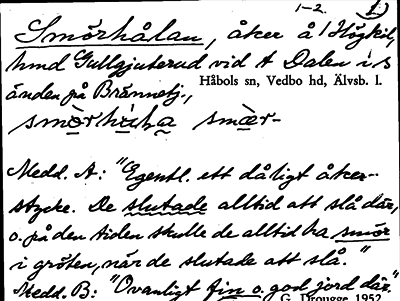 1-2. 1)
Smörhålan, åker å / Högkil,
hmd Gullgjuterud vid A Dalen i s
Håbols sn, Vedbo hd, Älvsb. l.
änden på Brännetj.,
smær-
Medd. A: "Egentl. ett dåligt åker-
stycke. De slutade alltid att slå där,
o. på den tiden skulle de alltid ha smör
i gröten, när de slutade att slå."
Medd. B: "Ovanligt fin o. god jord där."
G. Drougge 1952